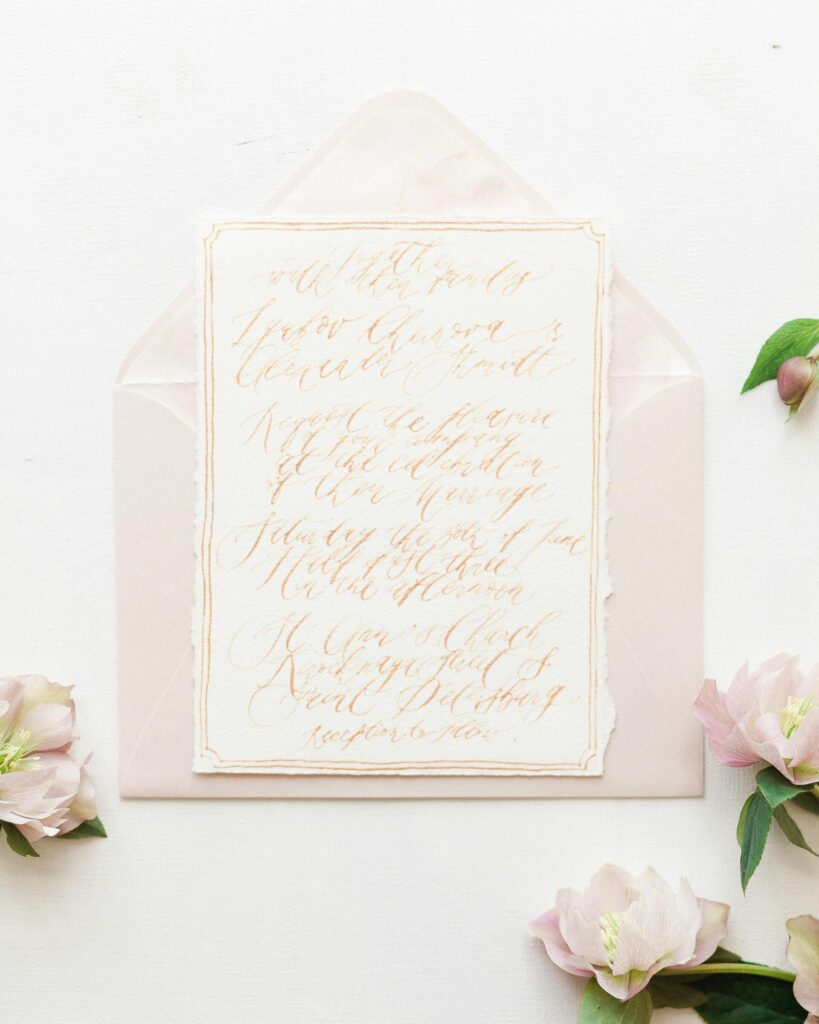 Together
with their families
Lyubov Chernova &
Alexander Shmidt
Request the pleasure
of your company
at the celebration
of their marriage
Saturday the 30th of June
Half past three
in the afternoon
St. Ann's Church
street
Saint Petersburg
Reception to follow